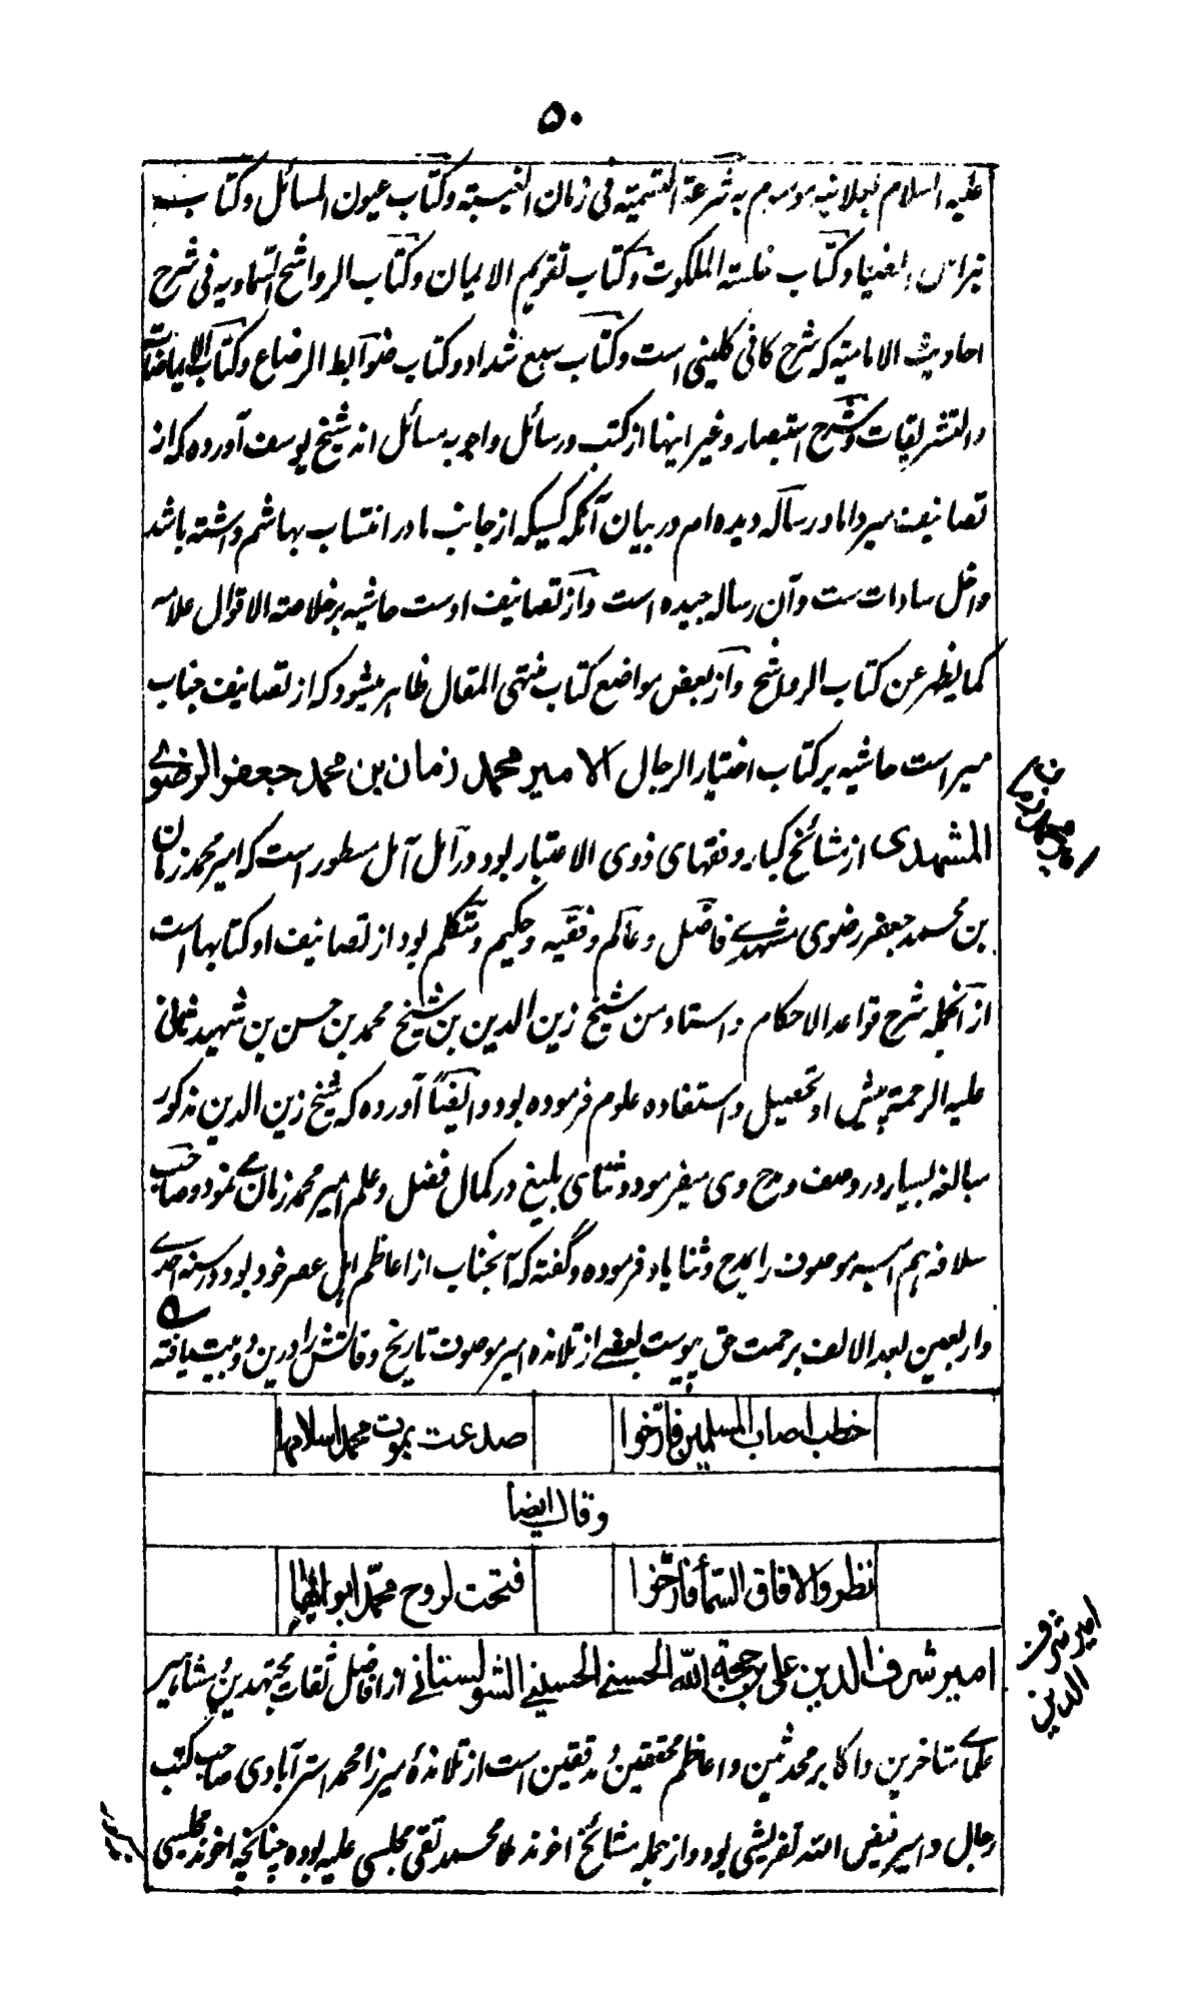 ۵۰
علیه السلام بعلانیه موسوم به شرعة التسمیة فی زمان الغیبة و کتاب عیون المسائل و کتاب
نبراس الضیا و کتاب خلسة الملکوت و کتاب تقویم الایمان و کتاب الرواشح السماویه فی شرح
احادیث الامامیة که شرح کافی کلینی است و کتاب سبع شداد و کتاب ضوابط الرضاع و کتاب الایماضات
والتشریقات و شرح استبصار و غیر اینها از کتب و رسائل و اجوبه مسائل اند شیخ یوسف آورده که از
تصانیف میر داماد رساله دیده ام در بیان آنکه کسیکه از جانب مادر انتساب بهاشم داشته باشد
داخل سادات ست و آن رساله جیده است و از تصانیف اوست حاشیه بر خلاصة الاقوال علامه
کما یظهر عن کتاب الرواشح و از بعض مواضع کتاب منتهی المقال ظاهر میشود که از تصانیف جناب
میر است حاشیه بر کتاب اختیار الرجال الامیر محمد زمان بن محمد جعفر الرضوی
المشهدی از مشائخ کبار و فقهای ذوی الاعتبار بود در آمل آمل مسطور است که امیر محمد زمان
بن محمد جعفر رضوی مشهدی فاضل و عالم و فقیه و حکیم و متکلم بود از تصانیف او کتابها است
از آنجمله شرح قواعد الاحکام و استاد من شیخ زین الدین بن شیخ محمد بن حسن بن شهید ثانی
علیه الرحمة پیش او تحصیل و استفاده علوم فرموده بود و ایضًا آورده که شیخ زین الدین مذکور
مبالغه بسیار در وصف و مدح وی میفرمود و ثنای بلیغ در کمال فضل و علم امیر محمد زمان می نمود و صاحب
سلافه هم سید موصوف را بمدح و ثنا یاد فرموده و گفته که آنجناب از اعاظم اهل عصر خود بود و در سنه احدی
و اربعین بعد الالف برحمت حق پیوست بعضے از تلامذه امیر موصوف تاریخ وفاتش را درین دو بیت یافته
خطب اصاب المسلمین فارخوا
صدعت بموت محمد اسلامها
وقال ایضا
نظروا الافاق السماء فارخوا
فتحت لروح محمد ابوابها
امیر شرف الدین علی بن حجة الله الحسنی الحسینی الشولستانی از افاضل ثقات مجتهدین و مشاهیر
علمای متاخرین و اکابر محدثین و اعاظم محققین و مدققین است از تلامذهٔ میرزا محمد استرآبادی صاحب کتب
رجال و امیر فیض الله تفریشی بود و از جمله مشائخ اخوند ملا محمد تقی مجلسی علیه بوده چنانچه اخوند مجلسی
امیر شرف
الدین